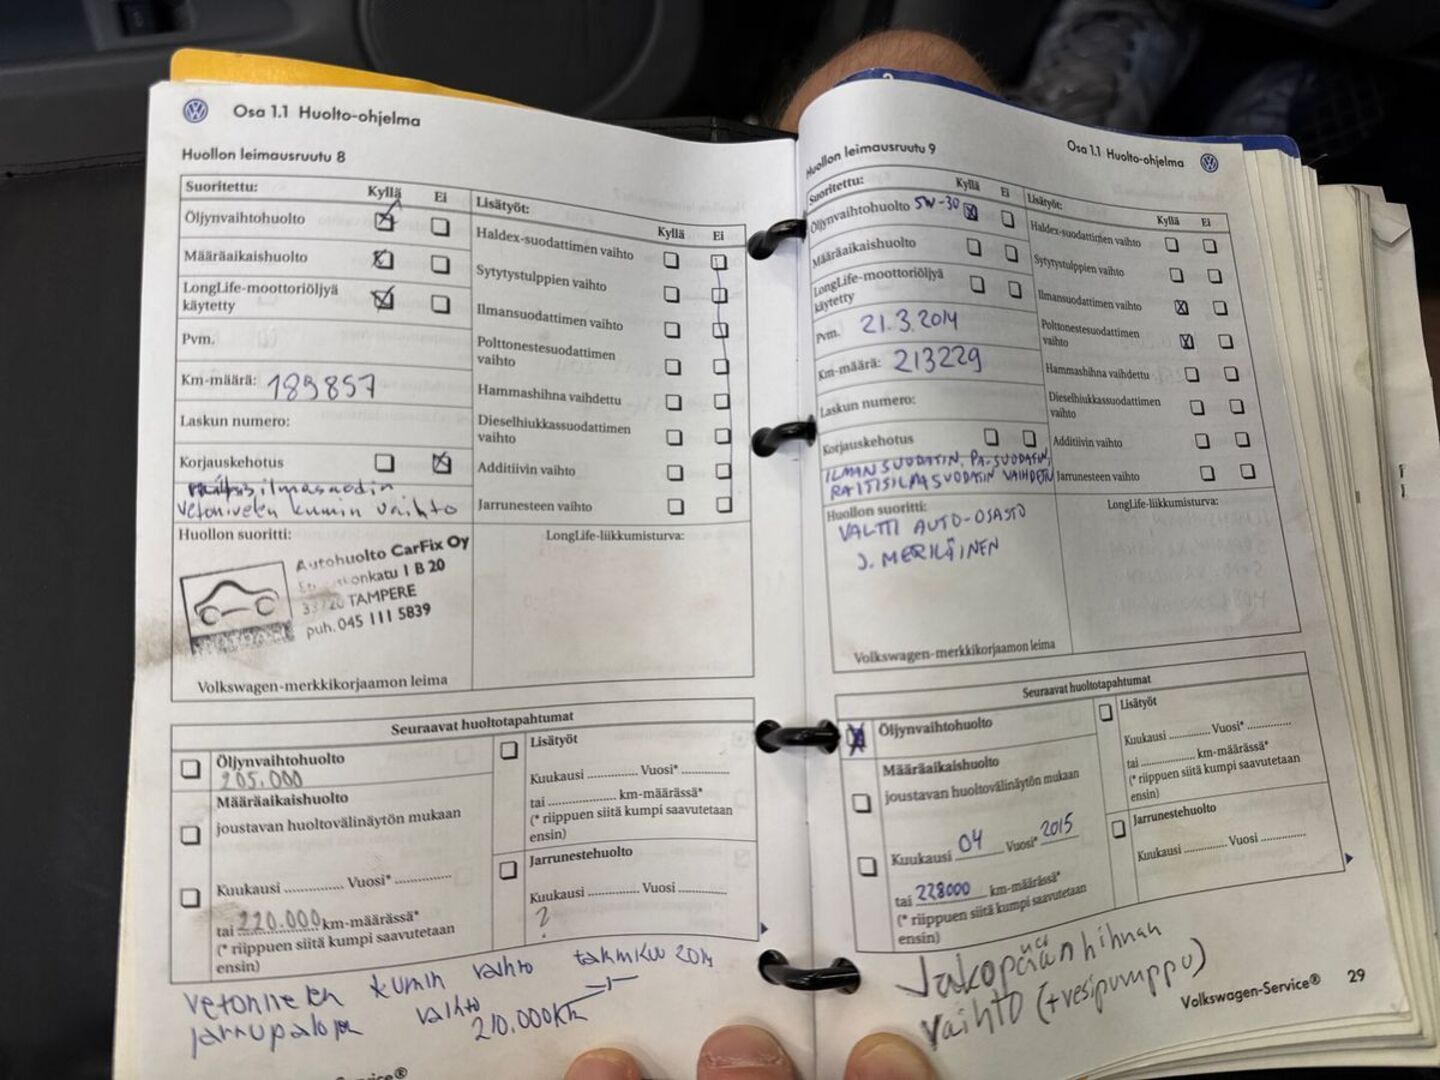 Osa 1.1 Huolto-ohjelma
Huollon leimausruutu 8
Suoritettu:
Kyllä
Ei
Öljynvaihtohuolto
Määräaikaishuolto
LongLife-moottoriöljyä
käytetty
Pvm.
Km-määrä: 189857
Laskun numero:
Korjauskehotus
vetonivelen kumin vaihto
Huollon suoritti:
Autohuolto CarFix Oy
1 B 20
TAMPERE
puh. 045 111 5839
Volkswagen-merkkikorjaamon leima
Lisätyöt:
Kyllä
Ei
Haldex-suodattimen vaihto
Sytytystulppien vaihto
Ilmansuodattimen vaihto
Polttonestesuodattimen
vaihto
Hammashihna vaihdettu
Dieselhiukkassuodattimen
vaihto
Additiivin vaihto
Jarrunesteen vaihto
LongLife-liikkumisturva:
Seuraavat huoltotapahtumat
Öljynvaihtohuolto
205.000
Määräaikaishuolto
joustavan huoltovälinäytön mukaan
Kuukausi .............. Vuosi* ..............
tai 220.000 km-määrässä*
(* riippuen siitä kumpi saavutetaan
ensin)
Lisätyöt
Kuukausi .............. Vuosi* ..............
tai .................... km-määrässä*
(* riippuen siitä kumpi saavutetaan
ensin)
Jarrunestehuolto
Kuukausi .............. Vuosi ..............
?
kumin vaihto 2014
vaihto
210.000km
Huollon leimausruutu 9
Osa 1.1 Huolto-ohjelma
Suoritettu:
Kyllä
Ei
Öljynvaihtohuolto 5W-30
Määräaikaishuolto
LongLife-moottoriöljyä
käytetty
Pvm. 21.3.2014
Km-määrä: 213229
Laskun numero:
Korjauskehotus
ILMANSUODATIN, PA-SUODATIN,
RAITISILMASUODATIN VAIHDETTU
Huollon suoritti:
VALTTI AUTO-OSASTO
J. MERILÄINEN
Volkswagen-merkkikorjaamon leima
Lisätyöt:
Kyllä
Ei
Haldex-suodattimen vaihto
Sytytystulppien vaihto
Ilmansuodattimen vaihto
Polttonestesuodattimen
vaihto
Hammashihna vaihdettu
Dieselhiukkassuodattimen
vaihto
Additiivin vaihto
Jarrunesteen vaihto
LongLife-liikkumisturva:
Seuraavat huoltotapahtumat
Öljynvaihtohuolto
Määräaikaishuolto
joustavan huoltovälinäytön mukaan
Kuukausi 04 Vuosi* 2015
tai 228000 km-määrässä*
(* riippuen siitä kumpi saavutetaan
ensin)
Lisätyöt
Kuukausi .............. Vuosi* ..............
tai .................... km-määrässä*
(* riippuen siitä kumpi saavutetaan
ensin)
Jarrunestehuolto
Kuukausi .............. Vuosi ..............
Jakopään hihnan
vaihto (+vesipumppu)
Volkswagen-Service® 29